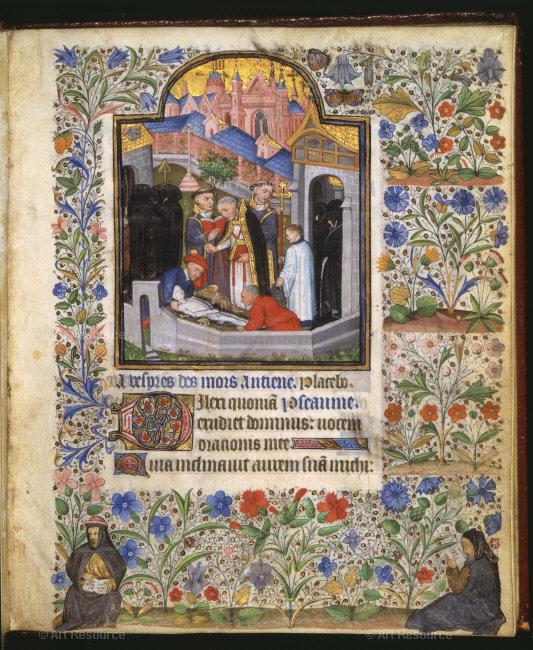 A vespres des mors Antiene. Placebo.
Dilexi quoniā Pseaume.
exaudiet dominus: vocem
orationis mee
Quia inclinavit aurem suā michi:
© Art Resource
© Art Resource